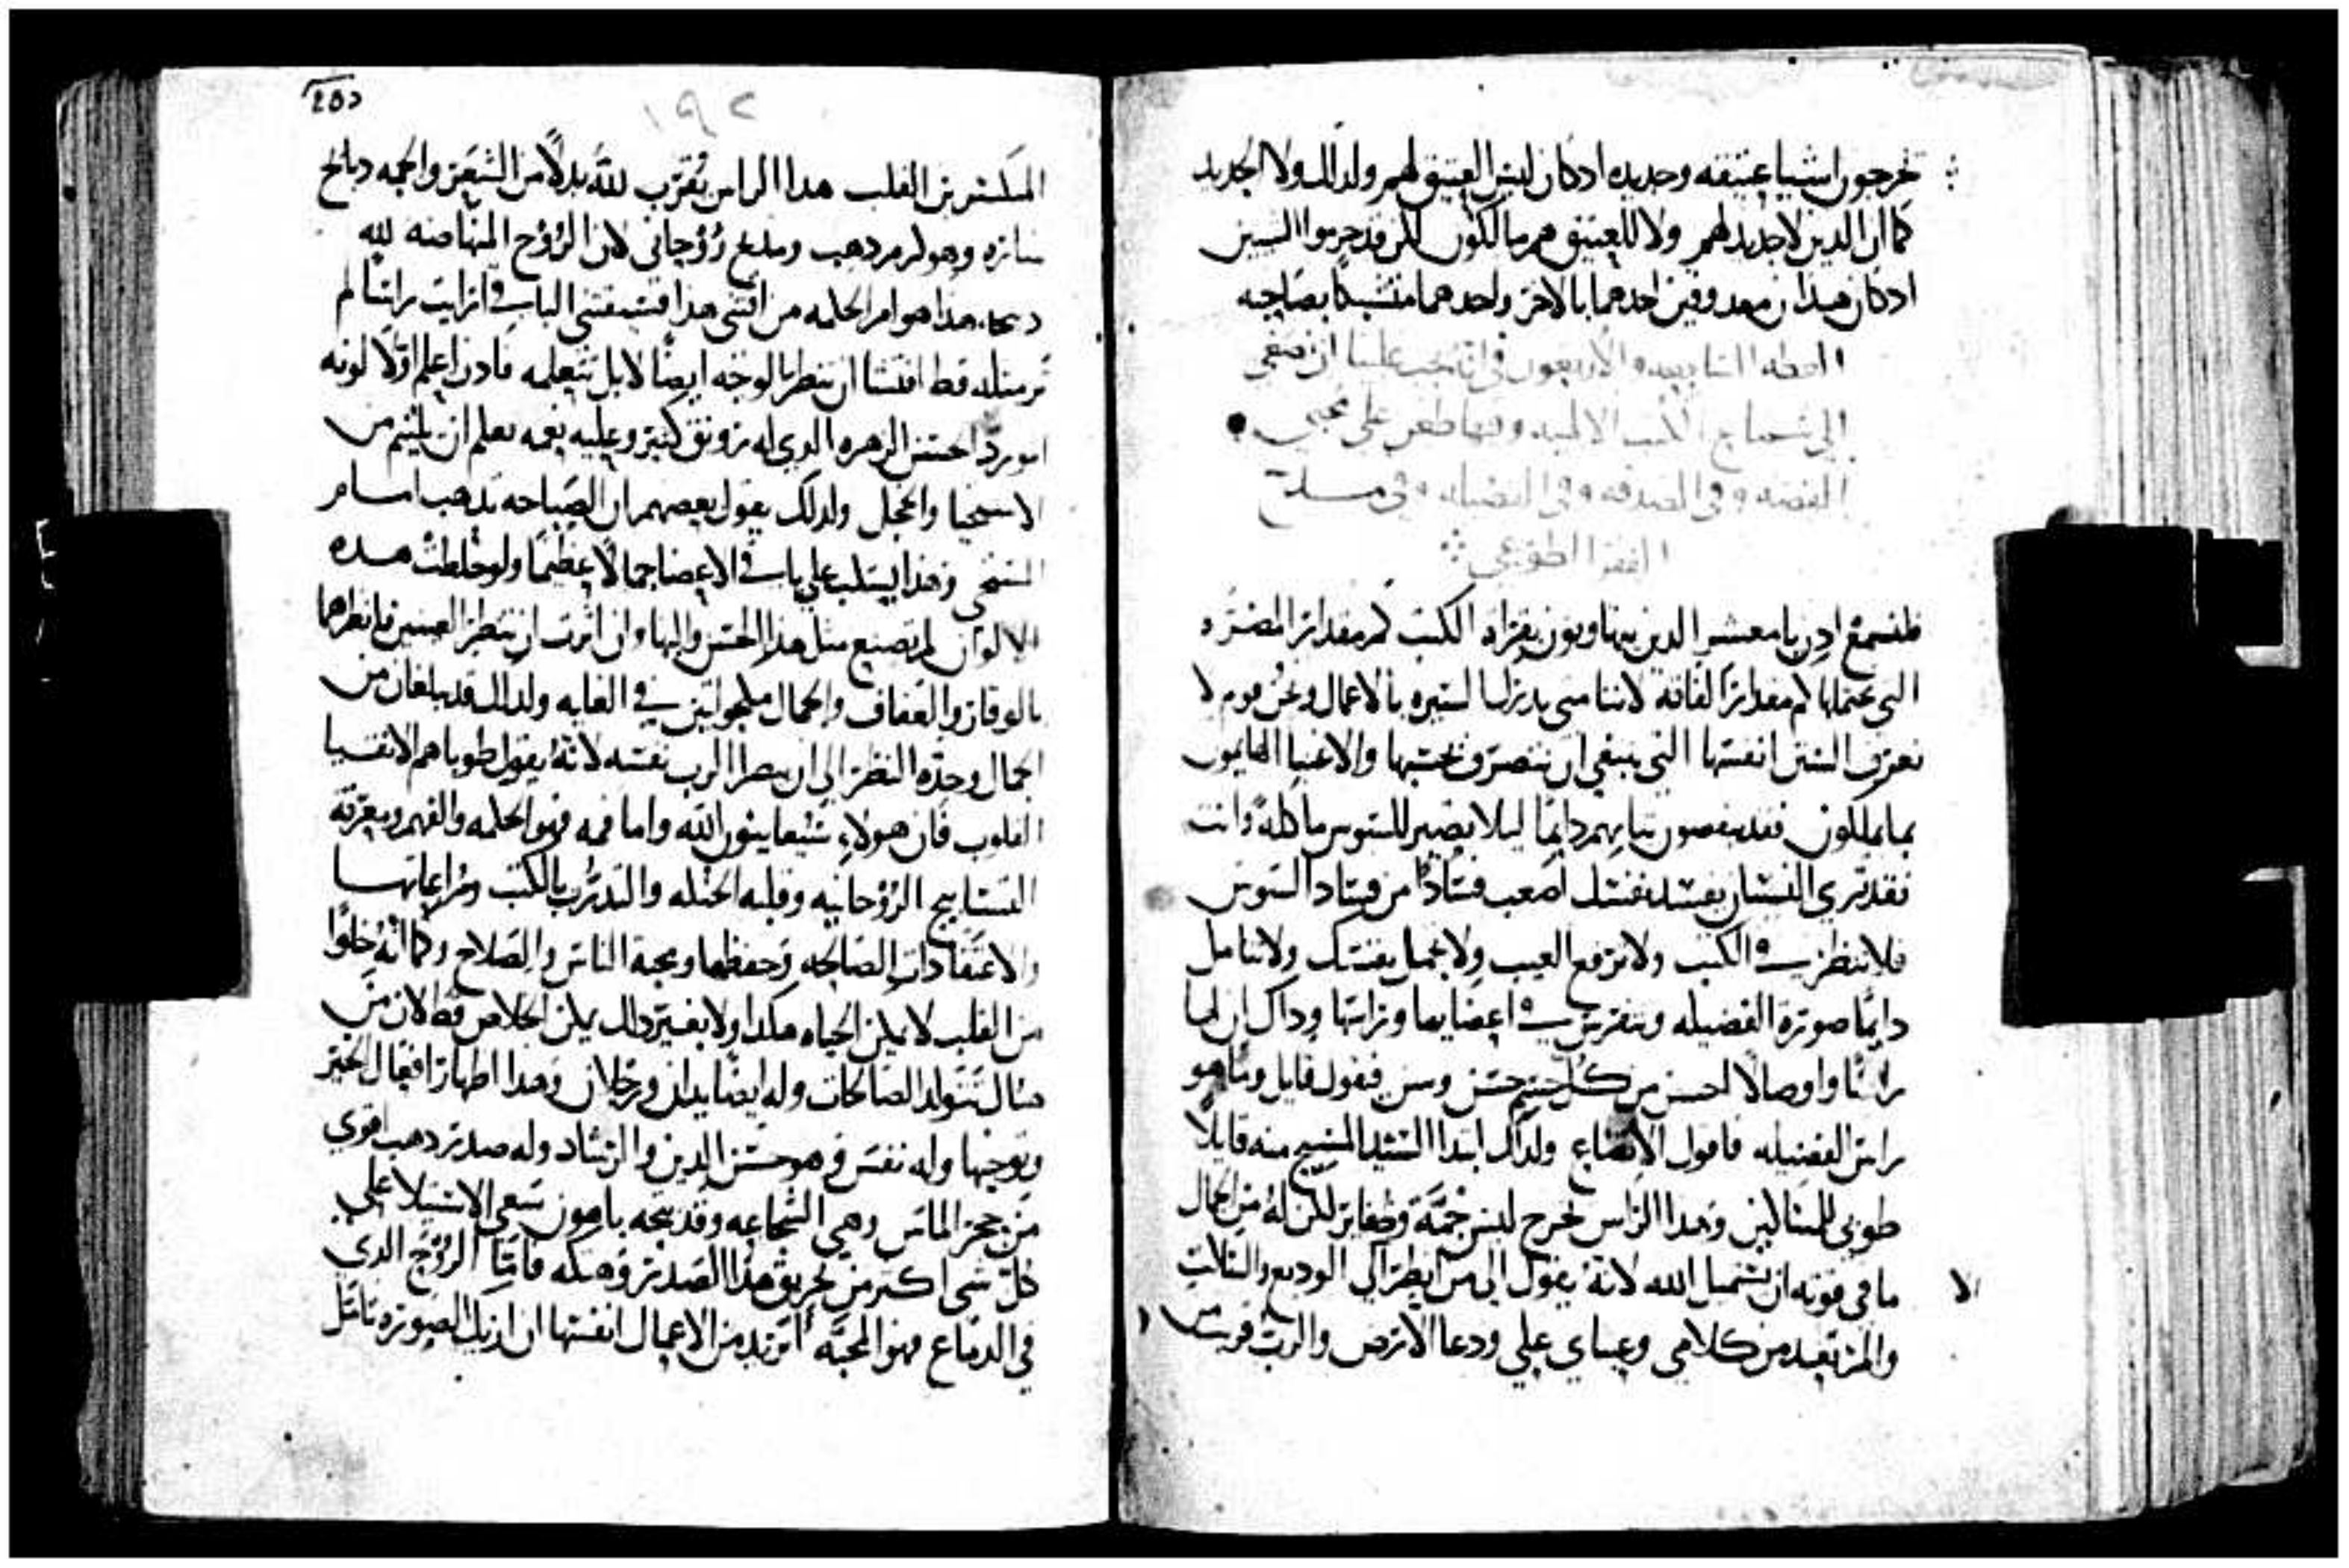 تخرجون اشيا عتيقه وحديده اد كان ليس العتيق لهم ولدلك ولا الجديد
كما ان الدين لا جديد لهم ولا للعتيق هم مالكون لكن قد حرموا السين
اد كان هدان معدوقين احدهما بالاخر واحدهما متشبكا بصاحبه
العظه السابعه والاربعون في انه يجب علينا ان نصغي
الي سماع الكتب الالهيه وفيها طعن علي محبي
الفضه وفي الصدقه وفي الفضيله وفي مديح
الفقر الطوعي
فلنسمع ادن يا معشر الدين يتهاونون بقراه الكتب كم مقدار المضره
التي نحتملها كم مقدار الفاقه لاننا متي بدرلها لسيره بالاعمال ونحن قوم لا
نعرف السنن انفسها التي ينبغي ان نتصرف بحسبها والاغنيا الهايمون
بما يملكون فقد ينفضون ثيابهم دايما ليلا يصير للسوس ماكله وانت
فقد تري النسيان يفسد نفسك اصعب فسادا من فساد السوس
فلا تنظر في الكتب ولا ترفع العيب ولا تجمل نفسك ولا تتامل
دايما صورة الفضيله وتتفرس في اعضايها وراسها وداك ان لها
راسا واوصالا احسن من كل جسم حسن وسن فيقول قايل وما هو
راس الفضيله فاقول الاتضاع ولداك ابتدا السيد المسيح منه قايلا
طوبي للمساكين وهدا الراس يخرج ليس جمة وظفاير لكن له من الجمال
ما في قوته ان يستميل الله لانه يقول الي من انظر الا الي الوديع والساكت
والمرتعد من كلامي وعيناي علي ودعا الارض والرب قريب من
٢٥٥
١٩٢
المنكسرين القلب هدا الراس يقرب لله بدلا من الشعر والجمه دبايح
ساره وهو كرم دهب ومدبح روحاني لان الروح المتهاضنه لله
دبيحه هدا هو ام الحكمه من اقتني هدا فسيقتني الباقي ارايت راسا لم
تر مثله قط افتشا ان تنظر الوجه ايضا لا بل تتعلمه فادن اعلم اولا لونه
المورد الحسن الزهره الدي له رونق كثير وعليه نعمه تعلم ان يلتيم من
الاستحيا والخجل ولدلك يقول بعضهم ان الصباحه تدهب امام
المستحي وهدا يسكب علي باقي الاعضا جمالا عظيما ولو خلطت هده
الالوان لم تصنع مثل هدا الحسن والبها وان اثرت ان تنظر العينين فانظرهما
بالوقار والعفاف والجمال مكحولتين في الغايه ولدلك قد يبلغان من
الجمال وحده النظر الي ان يبصرا الرب نفسه لانه يقول طوباهم الانقيا
القلوب فان هولاء سيعاينون الله واما فمه فهو الحكمه والفهم ومعرفة
التسابيح الروحانيه وقلبه الحنكه والتدرب بالكتب ومراعاتها
والاعتقادات الصالحه وحفظها ومحبة الناس والصلاح وكما انه خلوا
من القلب لا يمكن الحياه هكدا ولا بغير دلك يمكن الخلاص قط لان من
هناك تتولد الصالحات وله ايضا يدان ورجلان وهدا اظهار افعال الخير
وتوجيها وله نفس وهو حسن الدين والرشاد وله صدر دهب اقوي
من حجر الماس وهي الشجاعه وقد يتجه باهون سعي الاستيلا علي
كل شي اكثر من تمزيق هدا الصدر وهتكه فاما الروح الدي
في الدماغ فهو المحبه اتريد من الاعمال انفسها ان اريك الصوره تامل